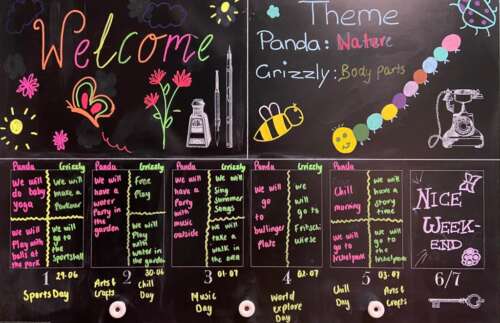 Welcome
Theme
Panda: Nature
Grizzly: Body parts
Panda
Grizzly
We will
do baby
yoga
We will
make a
Parkour
We will
Play with
balls at
the park
We will
go to
the
Sportshall
1 29.06
Sports Day
Panda
Grizzly
We will
have a
water
Party in
the
garden
Free
Play
We will
Play
with
water in
the garden
2 30.06
Arts &
Crafts
Chill
Day
Panda
Grizzly
We will
have a
Party
with
music
outside
We will
Sing
Summer
Songs
We will
take a
walk in
the area
3 01.07
Music
Day
Panda
Grizzly
We will
go
to
Bullinger
Platz
We
will
go to
Fritschi
Wiese
4 02.07
World
explore
Day
Panda
Grizzly
Chill
morning
We will
have a
story
time
We will
go to
We will
go to
the
5 03.07
Chill
Day
Arts &
Crafts
NICE
WEEK-
END
6/7